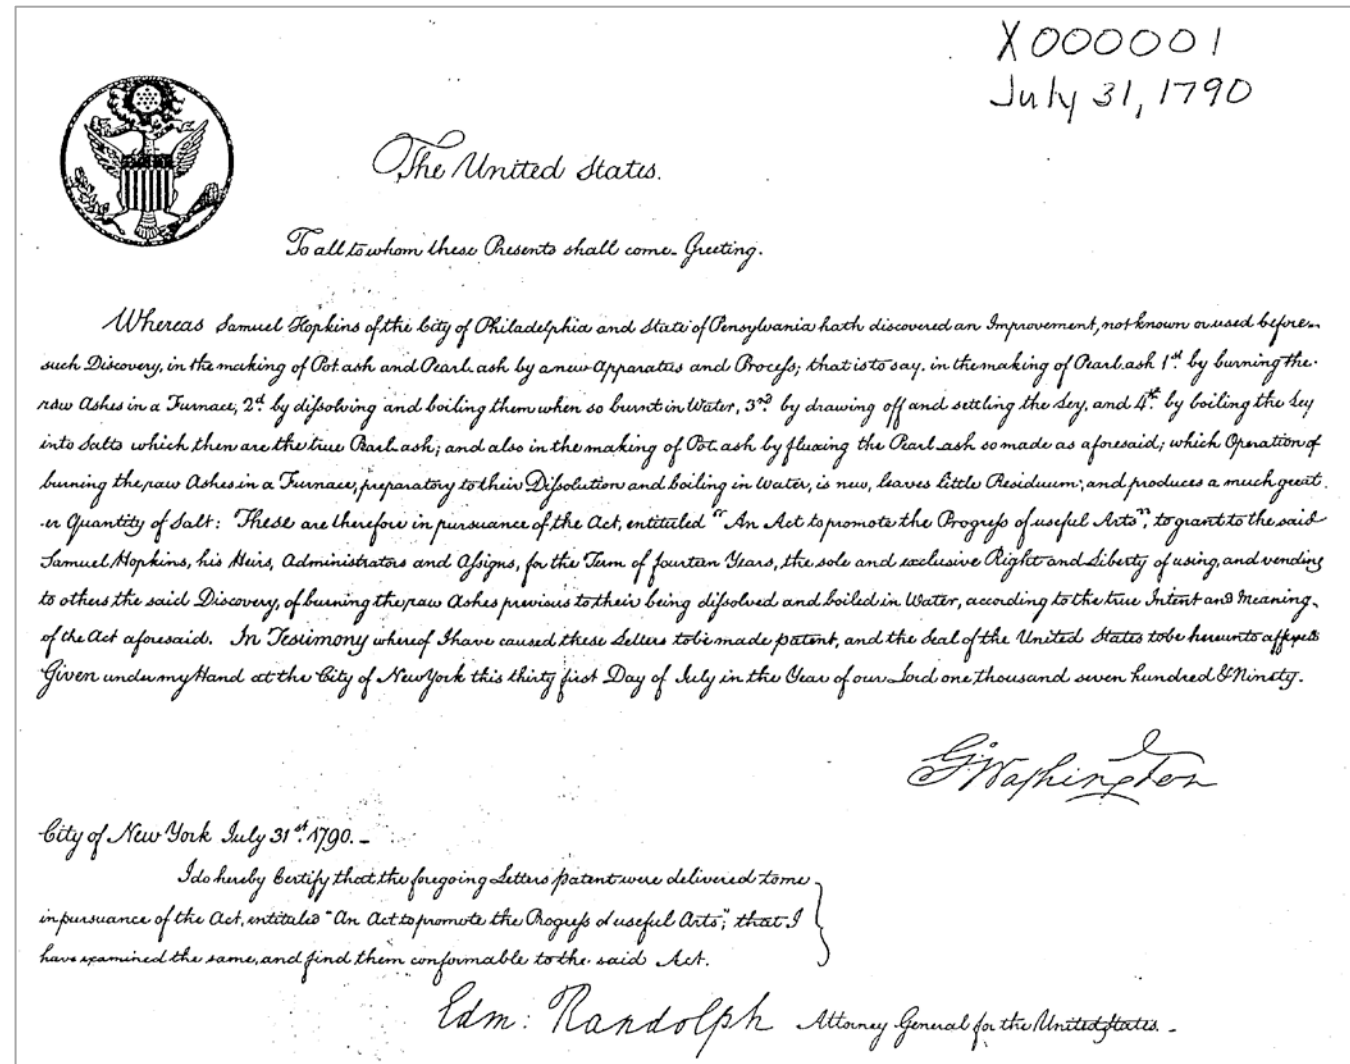 X000001
July 31, 1790
The United States.
To all to whom these Presents shall come. Greeting.
Whereas Samuel Hopkins of the City of Philadelphia and State of Pensylvania hath discovered an Improvement, not known or used before
such Discovery, in the making of Pot ash and Pearl ash by a new Apparatus and Process; that is to say, in the making of Pearl ash 1st by burning the
raw Ashes in a Furnace, 2d by dissolving and boiling them when so burnt in Water, 3rd by drawing off and settling the Ley, and 4th by boiling the Ley
into Salts which then are the true Pearl ash; and also in the making of Pot ash by fluxing the Pearl ash so made as aforesaid; which Operation of
burning the raw Ashes in a Furnace, preparatory to their Dissolution and boiling in Water, is new, leaves little Residuum; and produces a much great
-er Quantity of Salt: These are therefore in pursuance of the Act, entituled "An Act to promote the Progress of useful Arts", to grant to the said
Samuel Hopkins, his Heirs, Administrators and Assigns, for the Term of fourteen Years, the sole and exclusive Right and Liberty of using, and vending
to others the said Discovery, of burning the raw Ashes previous to their being dissolved and boiled in Water, according to the true Intent and Meaning
of the Act aforesaid. In Testimony whereof I have caused these Letters to be made patent, and the Seal of the United States to be hereunto affixed
Given under my Hand at the City of New York this thirty first Day of July in the Year of our Lord one thousand seven hundred & Ninety.
G. Washington
City of New York July 31st 1790. -
I do hereby Certify that the foregoing Letters patent were delivered to me
in pursuance of the Act, entituled "An Act to promote the Progress of useful Arts"; that I
have examined the same, and find them conformable to the said Act.
Edm: Randolph Attorney General for the United States. -